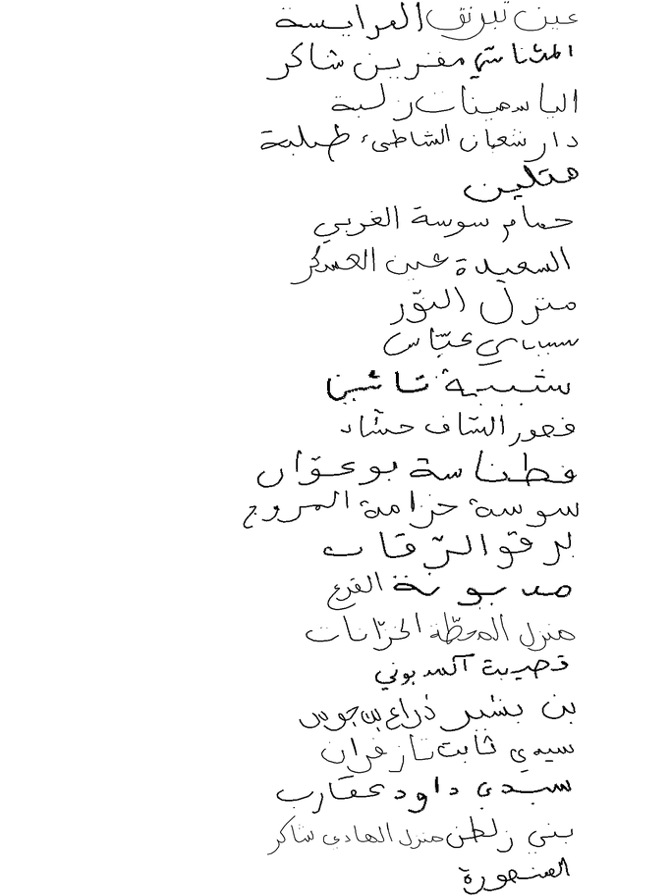 عين تبرنق المرايسة
المثناشي مفرين شاكر
الياسمينات زلبة
دار شعبان الشاطىء طبلبة
متلين
حمام سوسة الغربي
السعيدة عين العسكر
منزل النوّر
سيدي عبّاس
شبيبة
فحور الشاف حشاد
فطناسة بوعوّان
سوسة حزامة المروج
لرقو الرّقاب
صدبونة القرع
منزل المحطّة الخزّانات
قصيبة
بن بشير ذراع بن جوس
سيدي ثابت تازغران
سيدي داود عقارب
بني زلطن منزل الهادي شاكر
المنصورة